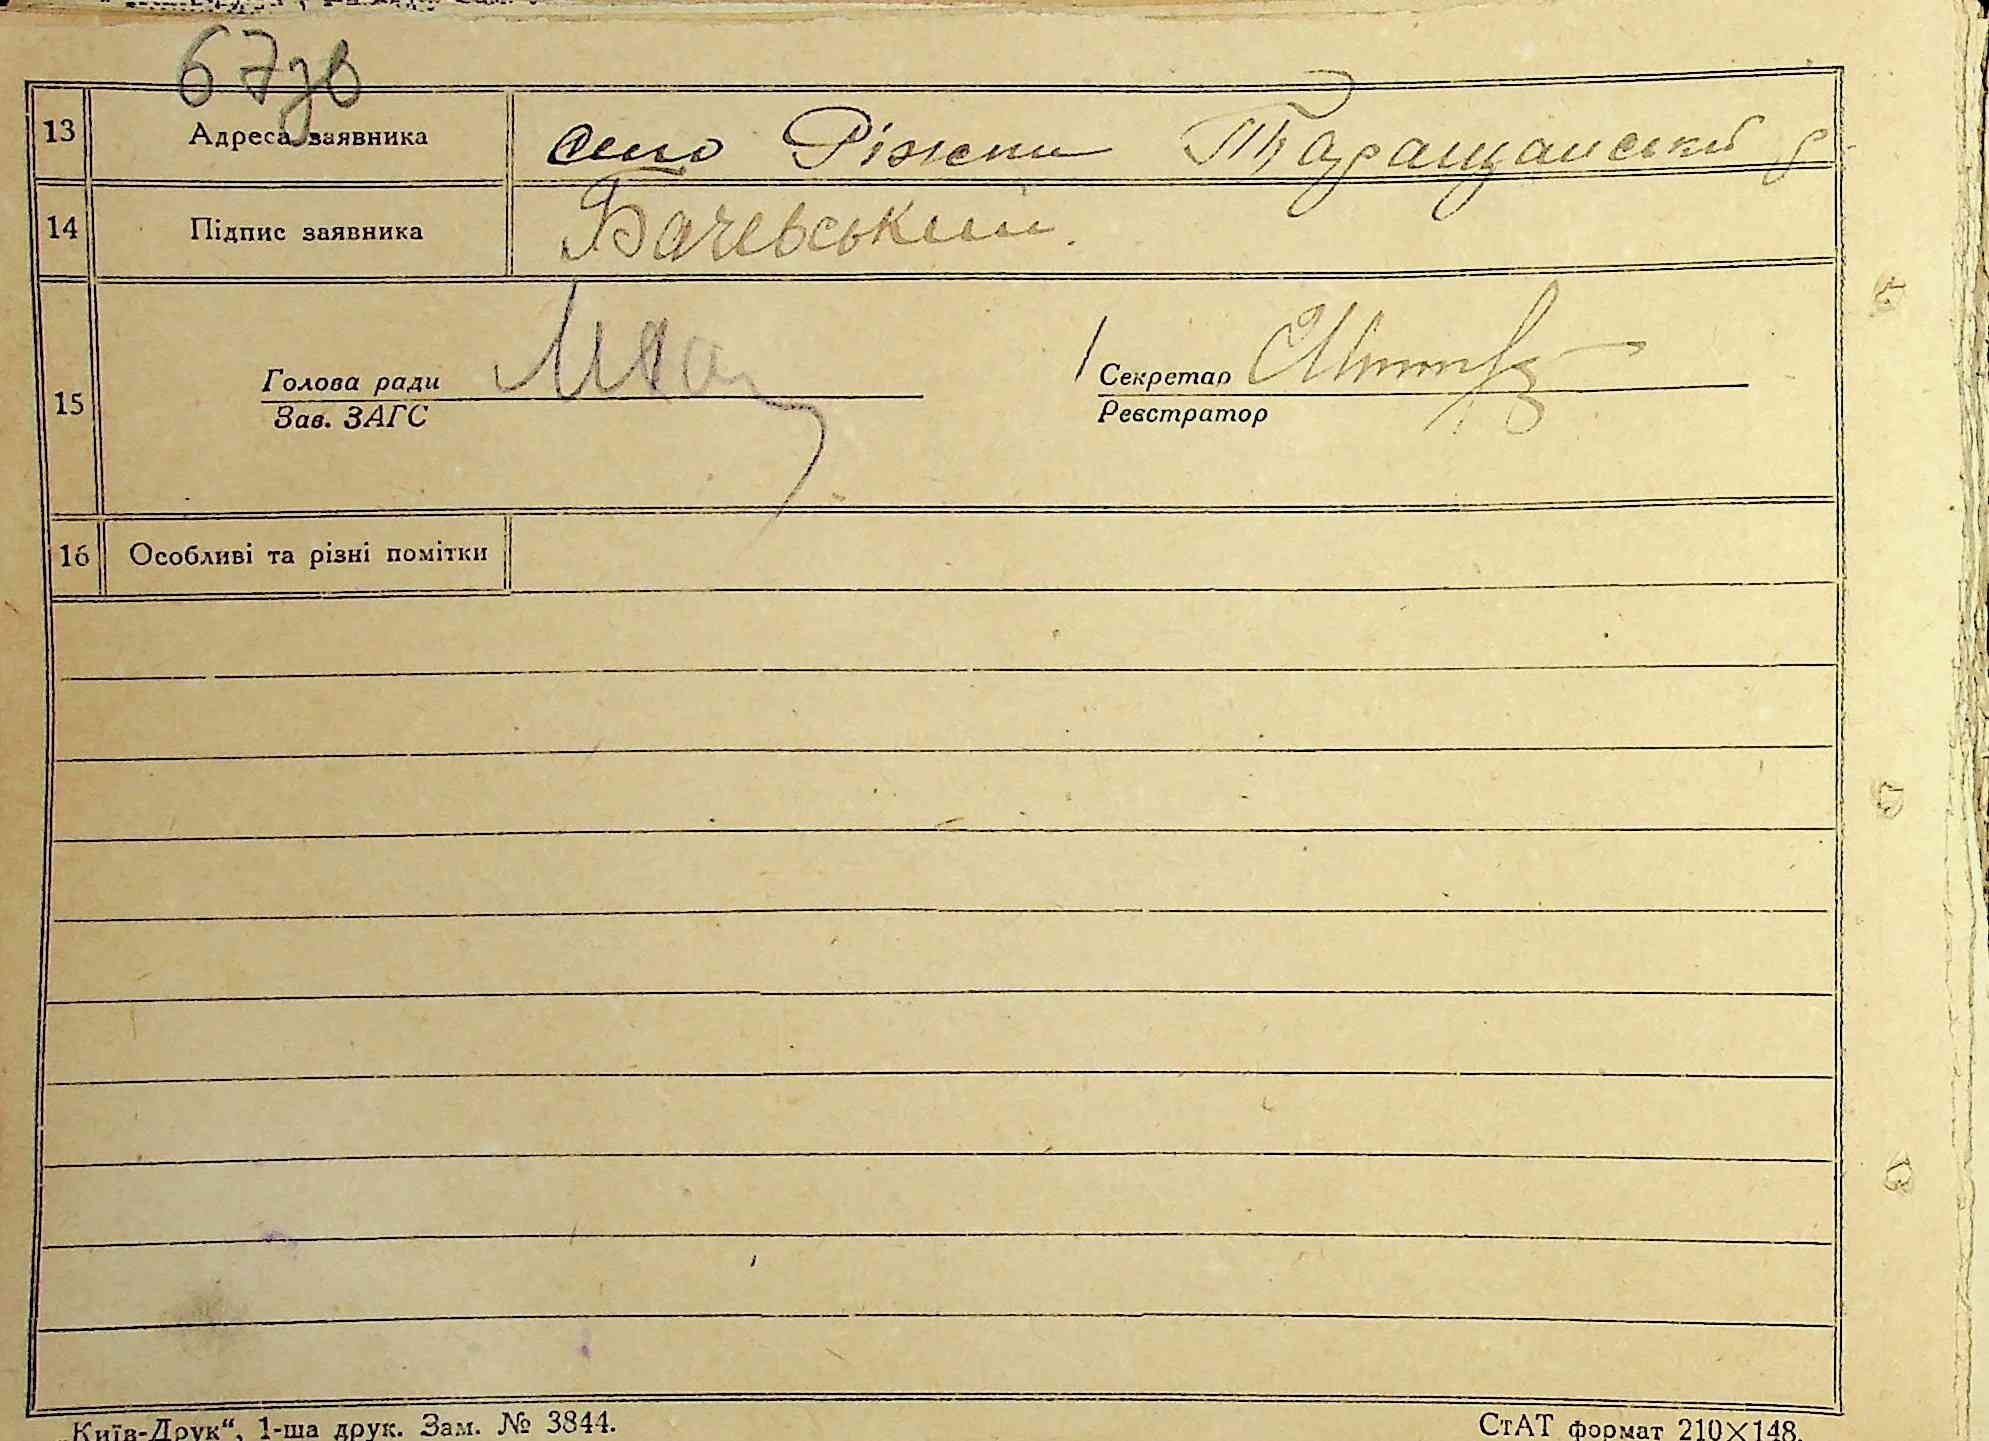 67зв
13 Адреса заявника село Ріжки Таращанський р
14 Підпис заявника Бачевський.
15 Голова ради Секретар
Зав. ЗАГС Реєстратор
16 Особливі та різні помітки
„Київ-Друк“, 1-ша друк. Зам. № 3844. СтАТ формат 210×148.